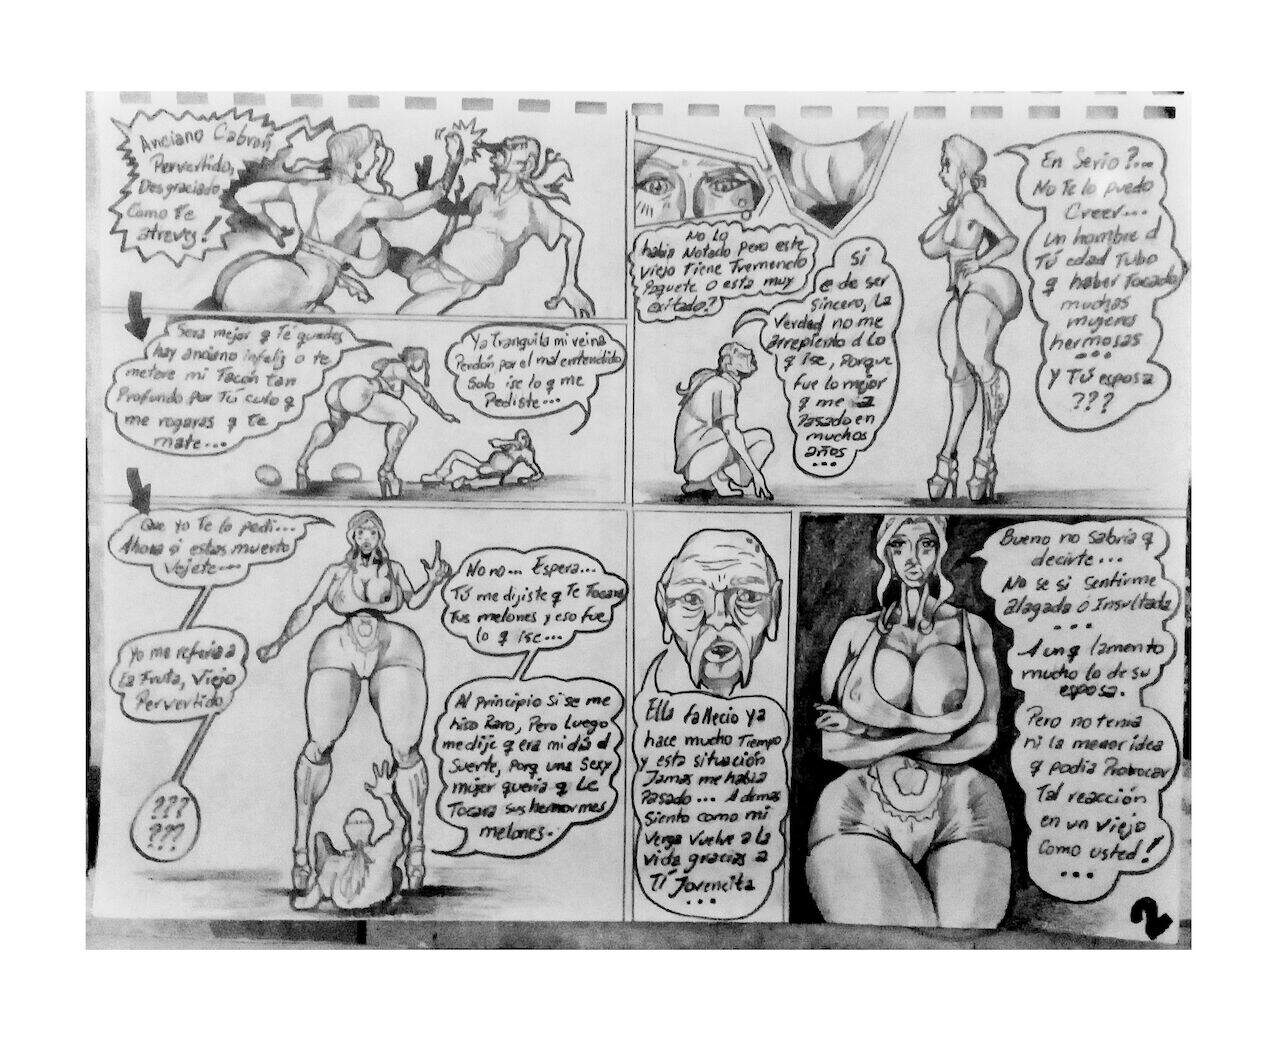 Anciano Cabron
Pervertido,
Desgraciado
Como Te
atreves!
Sera mejor q Te quedes
hay anciano infeliz o te
metere mi Tacón tan
Profundo por Tú culo q
me rogaras q Te
mate...
Ya Tranquila mi reina
Perdón por el mal entendido
Solo ise lo q me
Pediste...
Que yo Te lo pedi...
Ahora si estas muerto
Vejete...
Yo me referia a
La Fruta, Viejo
Pervertido
???
???
No no... Espera...
Tú me dijiste q Te Tocara
Tus melones y eso fue
lo q ise...
Al Principio Si se me
hiso Raro, Pero Luego
me dije q era mi día d
Suerte, Porq una Sexy
mujer queria q Le
Tocara Sus hermormes
melones.
No Lo
habia Notado Pero este
viejo Tiene Tremendo
Paquete o esta muy
exitado?
Si
e de ser
Sincero, La
Verdad no me
arrepiento d Lo
q ise, Porque
fue lo mejor
q me a
Pasado en
muchos
años
...
En Serio?...
No Te lo puedo
Creer...
Un hombre d
Tú edad Tubo
q haber Tocado
muchas
mujeres
hermosas
...
Y Tú esposa
???
Ella fallecio ya
hace mucho Tiempo
y esta situación
Jamas me habia
Pasado... Ademas
Siento como mi
Verga Vuelve a la
vida gracias a
Tí Jovencita
...
Bueno no Sabria q
decirte...
No se si Sentirme
alagada o Insultada
...
Aunq lamento
mucho lo de su
esposa.
Pero no tenia
ni la menor idea
q podia Provocar
Tal reacción
en un viejo
Como usted!
...
2